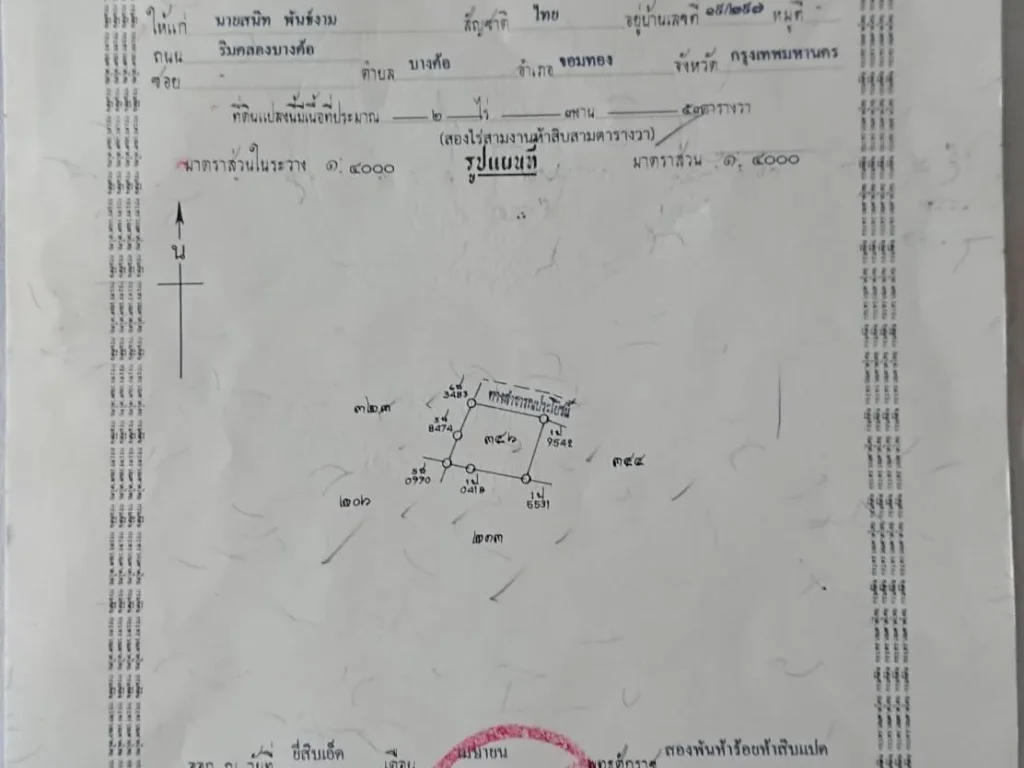 ให้แก่ นายสนิท พันธ์งาม สัญชาติ ไทย อยู่บ้านเลขที่ ๑๙/๒๙๗ หมู่ที่
ถนน ริมคลองบางค้อ
ซอย ตำบล บางค้อ อำเภอ จอมทอง จังหวัด กรุงเทพมหานคร
ที่ดินแปลงนี้มีเนื้อที่ประมาณ ๒ ไร่ ๓ งาน ๕๓ ตารางวา
(สองไร่สามงานห้าสิบสามตารางวา)
มาตราส่วนในระวาง ๑ : ๔๐๐๐ รูปแผนที่ มาตราส่วน ๑ : ๔๐๐๐
น
3483 ทางสาธารณประโยชน์
๓๒๓
8474 ๓๔๖ 9542
๓๔๔
0990 0418 6531
๒๐๖
๒๓๓
ออก ณ วันที่ ยี่สิบเอ็ด เดือน เมษายน พุทธศักราช สองพันห้าร้อยห้าสิบแปด